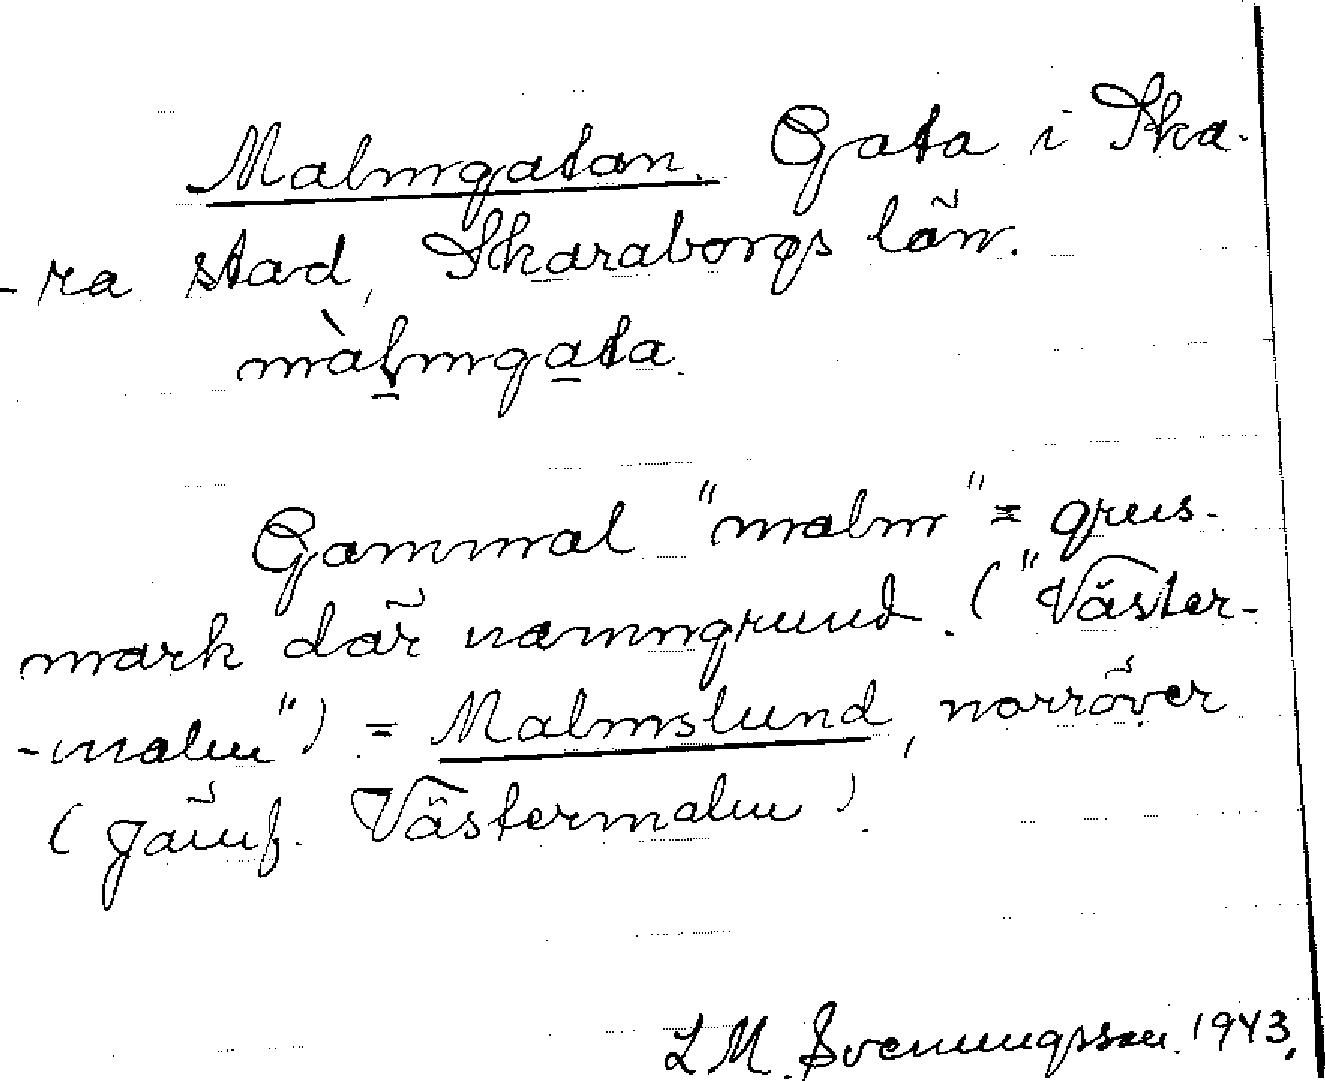 Malmgatan. Gata i Ska-
-ra stad, Skaraborgs län.
màl̠mga̠ta.
Gammal "malm" = grus-
mark där namngrund. ("Väster-
-malm") = Malmslund, norröver
(jämf. Västermalm).
L M. Svenungsson. 1943.